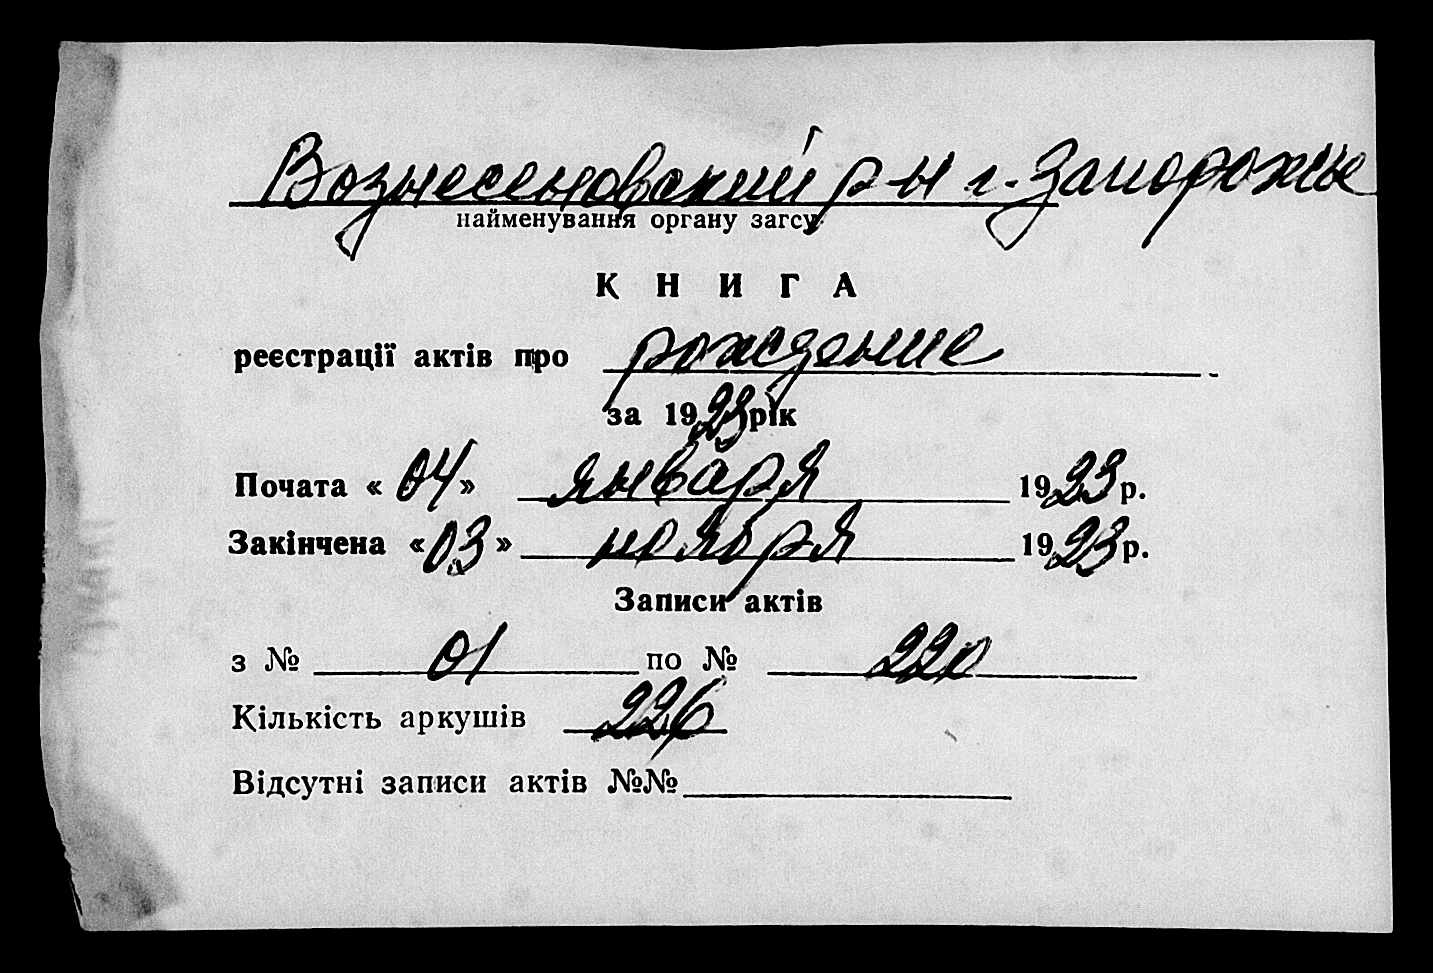 Вознесеновский р-н г. Запорожье
найменування органу загсу
КНИГА
реєстрації актів про рождение
за 1923 рік
Почата « 04 » января 1923 р.
Закінчена « 03 » ноября 1923 р.
Записи актів
з № 01 по № 220
Кількість аркушів 226
Відсутні записи актів №№